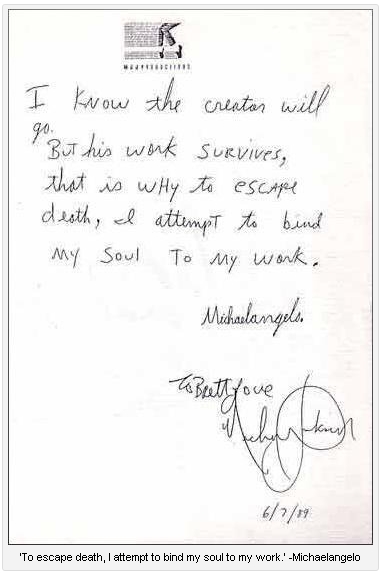 MJJ PRODUCTIONS
I KNOW the creator will
go.
But his work SURVIVES,
that is WHY to ESCAPE
death, I attempt to bind
MY Soul To My work.
Michaelangelo.
To Brett Love
6/7/89
'To escape death, I attempt to bind my soul to my work.' -Michaelangelo